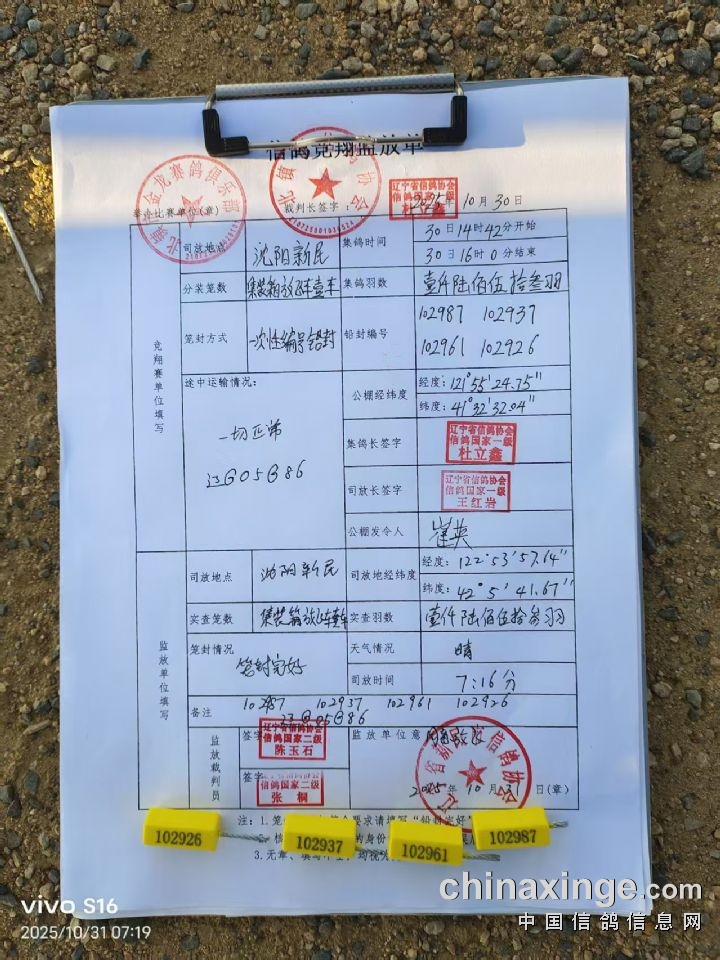 信鸽竞翔监放单
举办比赛单位(章) 裁判长签字: 2025年10月30日
金龙赛鸽俱乐部
辽宁省信鸽协会
司放地点 沈阳新民 集鸽时间 30日14时42分开始
30日16时0分结束
分装笼数 集装箱放飞车壹车 集鸽羽数 壹仟陆佰伍拾叁羽
笼封方式 一次性编号铅封 铅封编号 102987 102937
102961 102926
竞翔赛单位填写
途中运输情况: 公棚经纬度 经度: 121°55'24.75"
纬度: 41°32'32.04"
一切正常
集鸽长签字 辽宁省信鸽协会
信鸽国家一级
杜立鑫
司放长签字 辽宁省信鸽协会
信鸽国家一级
王红岩
公棚发令人 崔英
司放地点 沈阳新民 司放地经纬度 经度: 122°53'57.64"
纬度: 42°5'41.67"
实查笼数 集装箱放飞车壹车 实查羽数 壹仟陆佰伍拾叁羽
监放单位填写
笼封情况 笼封完好 天气情况 晴
司放时间 7:16分
备注 102987 102937 102961 102926
监放裁判员 签字 辽宁省信鸽协会
信鸽国家二级
陈玉石
监放单位意
签字 信鸽国家二级
张桐
2025年10月31日(章)
注: 1.笼
要求请填写"铅封完好"
2.
的身份
3.无章、
均视
102926 102937 102961 102987
vivo S16
2025/10/31 07:19
chinaxinge.com
中国信鸽信息网